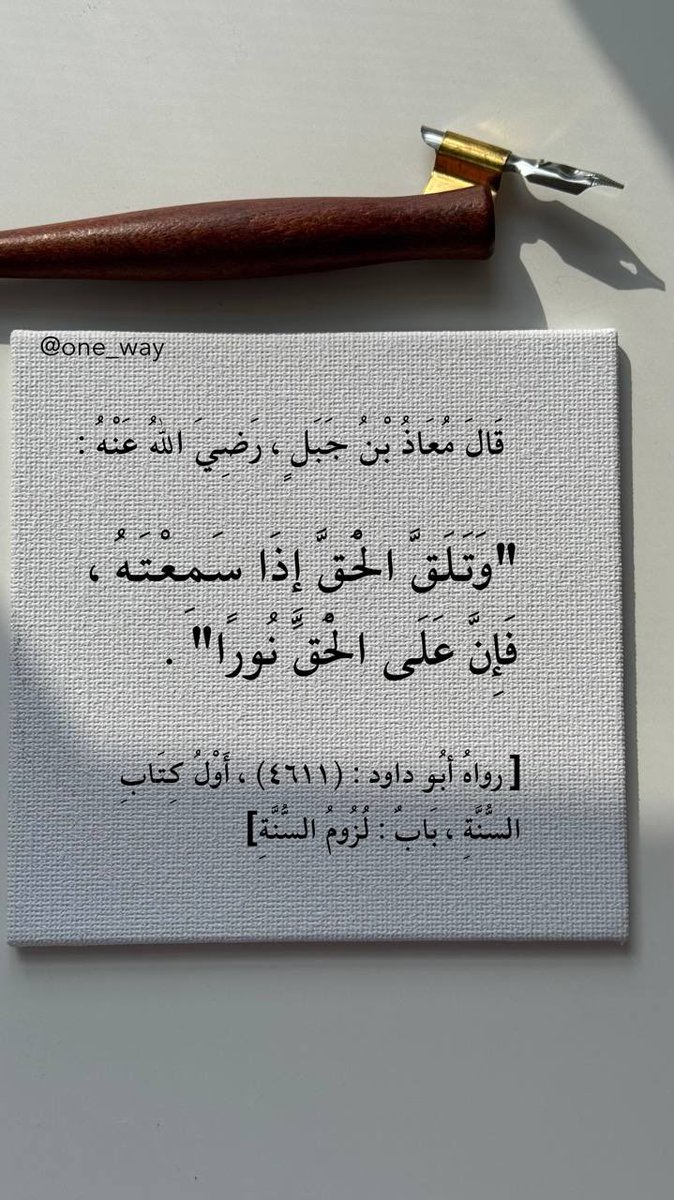 @one_way
قَالَ مُعَاذُ بْنُ جَبَلٍ ، رَضِيَ اللهُ عَنْهُ :
"وَتَلَقَّ الْحَقَّ إِذَا سَمِعْتَهُ ،
فَإِنَّ عَلَى الْحَقِّ نُورًا" .
[رواهُ أبُو داود : (٤٦١١) ، أَوْلُ كِتَابِ
السُّنَّةِ ، بَابٌ : لُزُومُ السُّنَّةِ]